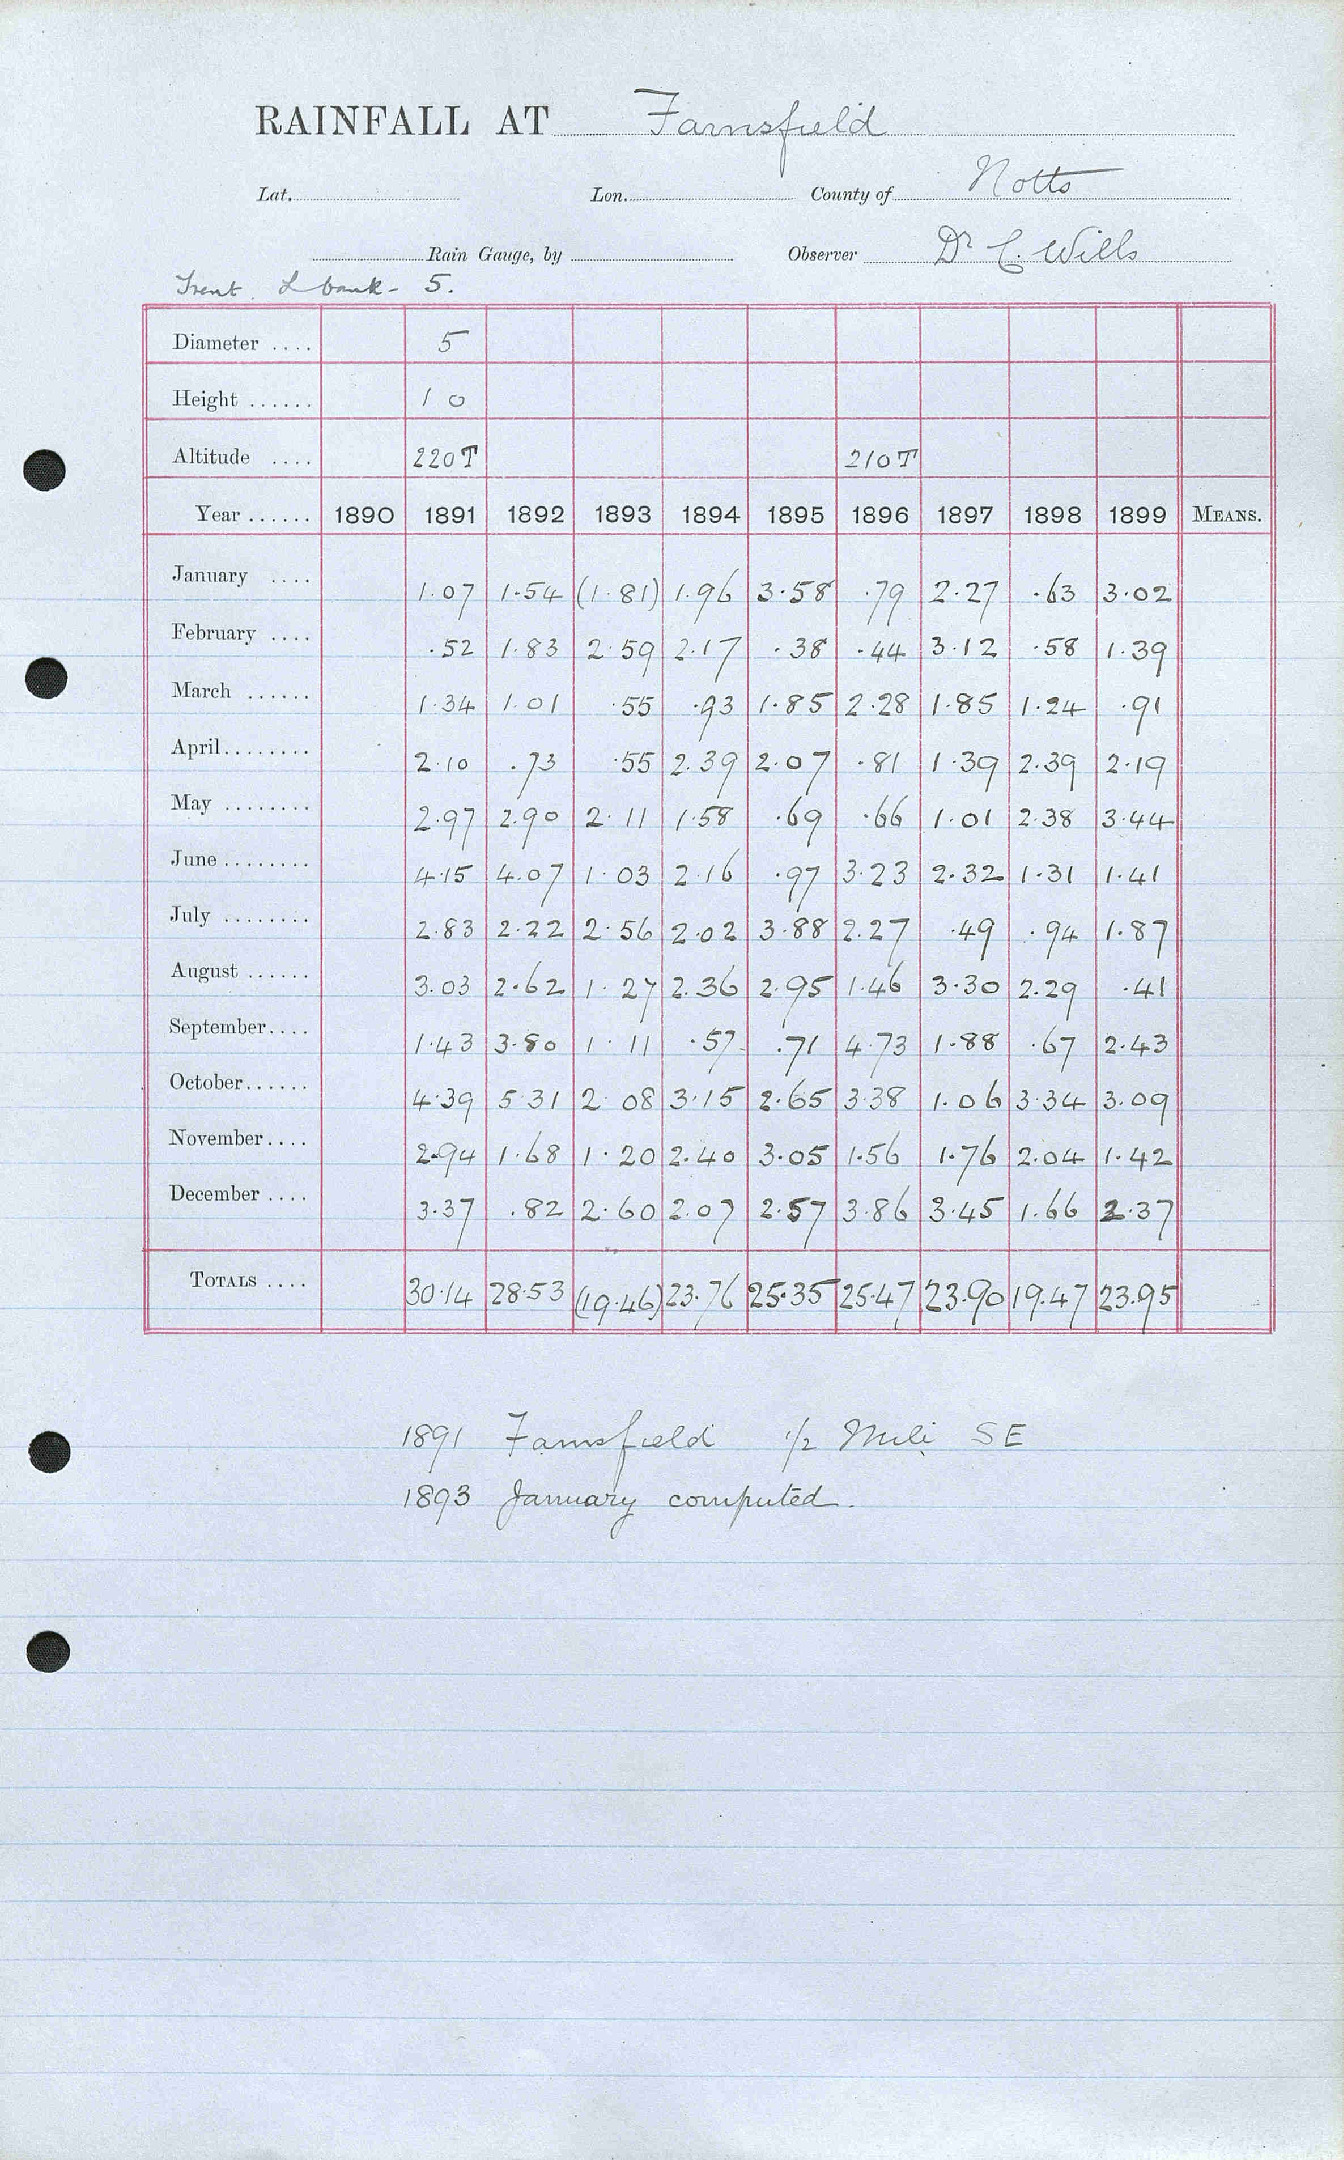 RAINFALL AT Farnsfield
Lat. Lon. County of Notts
Rain Gauge, by Observer Dr C. Wills
Trent L bank - 5.
Diameter .... 5
Height ...... 1 0
Altitude .... 220T 210T
Year ...... 1890 1891 1892 1893 1894 1895 1896 1897 1898 1899 MEANS.
January .... 1.07 1.54 (1.81) 1.96 3.58 .79 2.27 .63 3.02
February .... .52 1.83 2.59 2.17 .38 .44 3.12 .58 1.39
March ...... 1.34 1.01 .55 .93 1.85 2.28 1.85 1.24 .91
April ........ 2.10 .73 .55 2.39 2.07 .81 1.39 2.39 2.19
May ........ 2.97 2.90 2.11 1.58 .69 .66 1.01 2.38 3.44
June ........ 4.15 4.07 1.03 2.16 .97 3.23 2.32 1.31 1.41
July ........ 2.83 2.22 2.56 2.02 3.88 2.27 .49 .94 1.87
August ...... 3.03 2.62 1.27 2.36 2.95 1.46 3.30 2.29 .41
September .... 1.43 3.80 1.11 .57 .71 4.73 1.88 .67 2.43
October ...... 4.39 5.31 2.08 3.15 2.65 3.38 1.06 3.34 3.09
November .... 2.94 1.68 1.20 2.40 3.05 1.56 1.76 2.04 1.42
December .... 3.37 .82 2.60 2.07 2.57 3.86 3.45 1.66 2.37
TOTALS .... 30.14 28.53 (19.46) 23.76 25.35 25.47 23.90 19.47 23.95
1891 Farnsfield 1/2 Mile SE
1893 January computed.